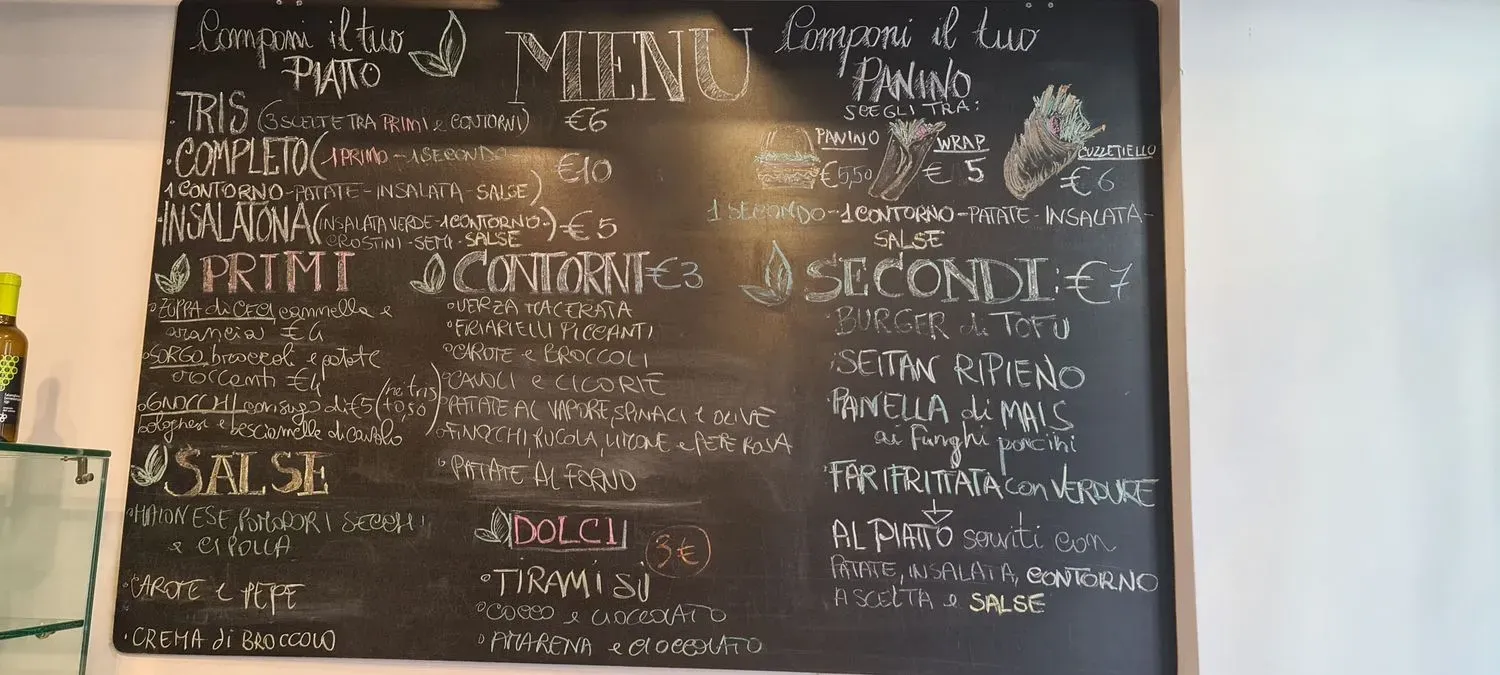 Componi il tuo
PIATTO
MENU
Componi il tuo
PANINO
SCEGLI TRA:
PANINO
€5,50
WRAP
€ 5
CUZZETIELLO
€6
1 SECONDO-1 CONTORNO-PATATE-INSALATA-
SALSE
•TRIS (3 SCELTE TRA PRIMI e CONTORNI) €6
•COMPLETO (1 PRIMO-1 SECONDO €10
1 CONTORNO-PATATE-INSALATA-SALSE)
•INSALATONA (INSALATA VERDE-1 CONTORNO-)-€5
CROSTINI-SEMI-SALSE
PRIMI
°ZUPPA di CECI cannella e
arancia €4
°SORGO broccoli e patate
croccanti €4
°GNOCCHI con sugo di €5 (ne tris)
bolognese e besciamelle di cavolo (+0,50)
SALSE
•MAIONESE, POMODORI SECCHI
e CIPOLLA
•CAROTE e PEPE
•CREMA di BROCCOLO
CONTORNI €3
°VERZA MACERATA
°FRIARIELLI PICCANTI
°CAROTE e BROCCOLI
°CAVOLI e CICORIE
°PATATE AL VAPORE, SPINACI e OLIVE
°FINOCCHI, RUCOLA, LIMONE e PEPE ROSA
°PATATE AL FORNO
DOLCI 3€
°TIRAMISÙ
°COCCO e CIOCCOLATO
°AMARENA e CIOCCOLATO
SECONDI: €7
•BURGER di TOFU
•SEITAN RIPIENO
•PANELLA di MAIS
ai Funghi porcini
•FARIFRITTATA con VERDURE
AL PIATTO serviti con
PATATE, INSALATA, CONTORNO
A SCELTA e SALSE